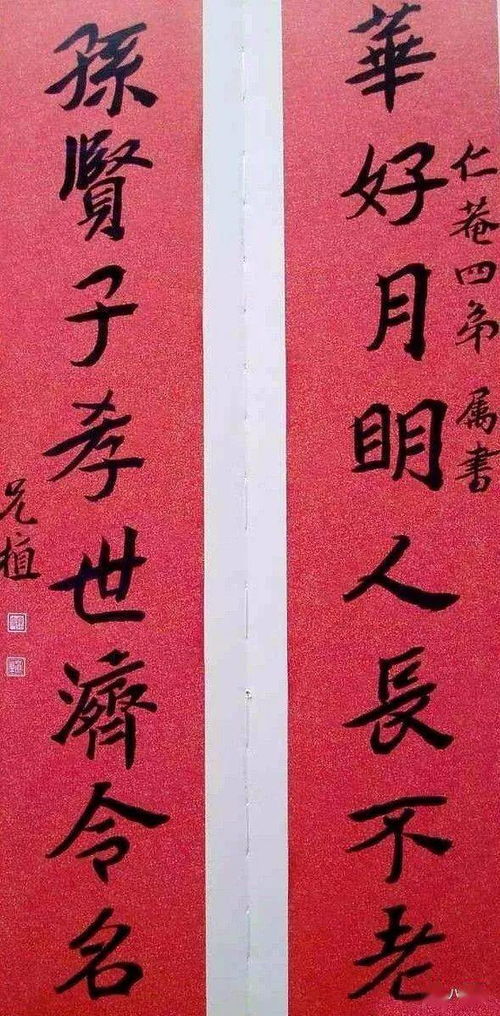 仁菴四弟属書
華好月明人長不老
孫賢子孝世濟令名
兄植